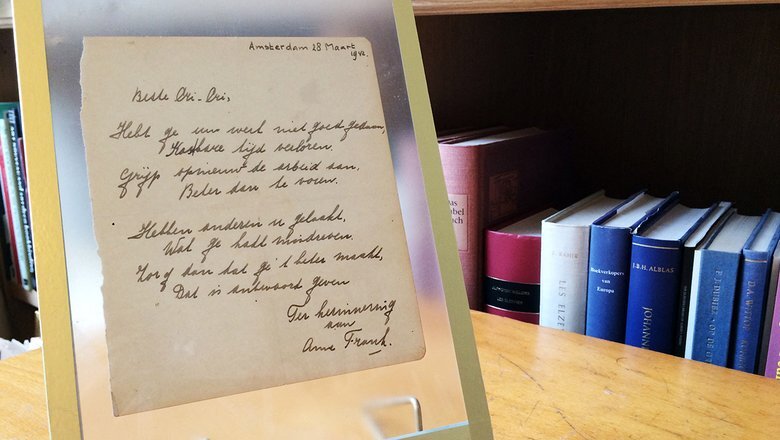 Amsterdam 28 Maart
1942.
Beste Cri-Cri,
Hebt ge uw werk niet goed gedaan,
Kostbare tijd verloren.
Grijp opnieuw de arbeid aan,
Beter dan te voren.
Hebben anderen u gelaakt,
Wat ge hadt misdreven.
Zorg dan dat ge 't beter maakt,
Dat is antwoord geven
Ter herinnering
aan
Anne Frank.
E. RAHIR
LES ELZE
Boekverkopers
van
Europa
J.B.H. ALBLAS
JOHANN
F.J. DUBIEZ
D.A. WITTOP